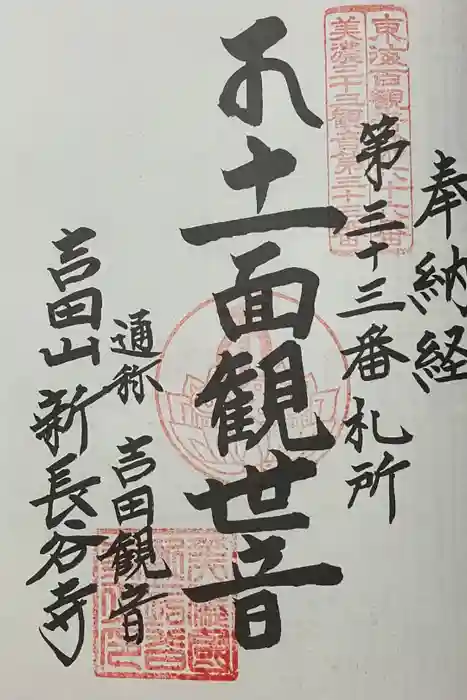 奉納経
東海百観
美濃三十三観音第三十三番
第三十三番札所
十一面観世音
通称 吉田観音
吉田山新長谷寺